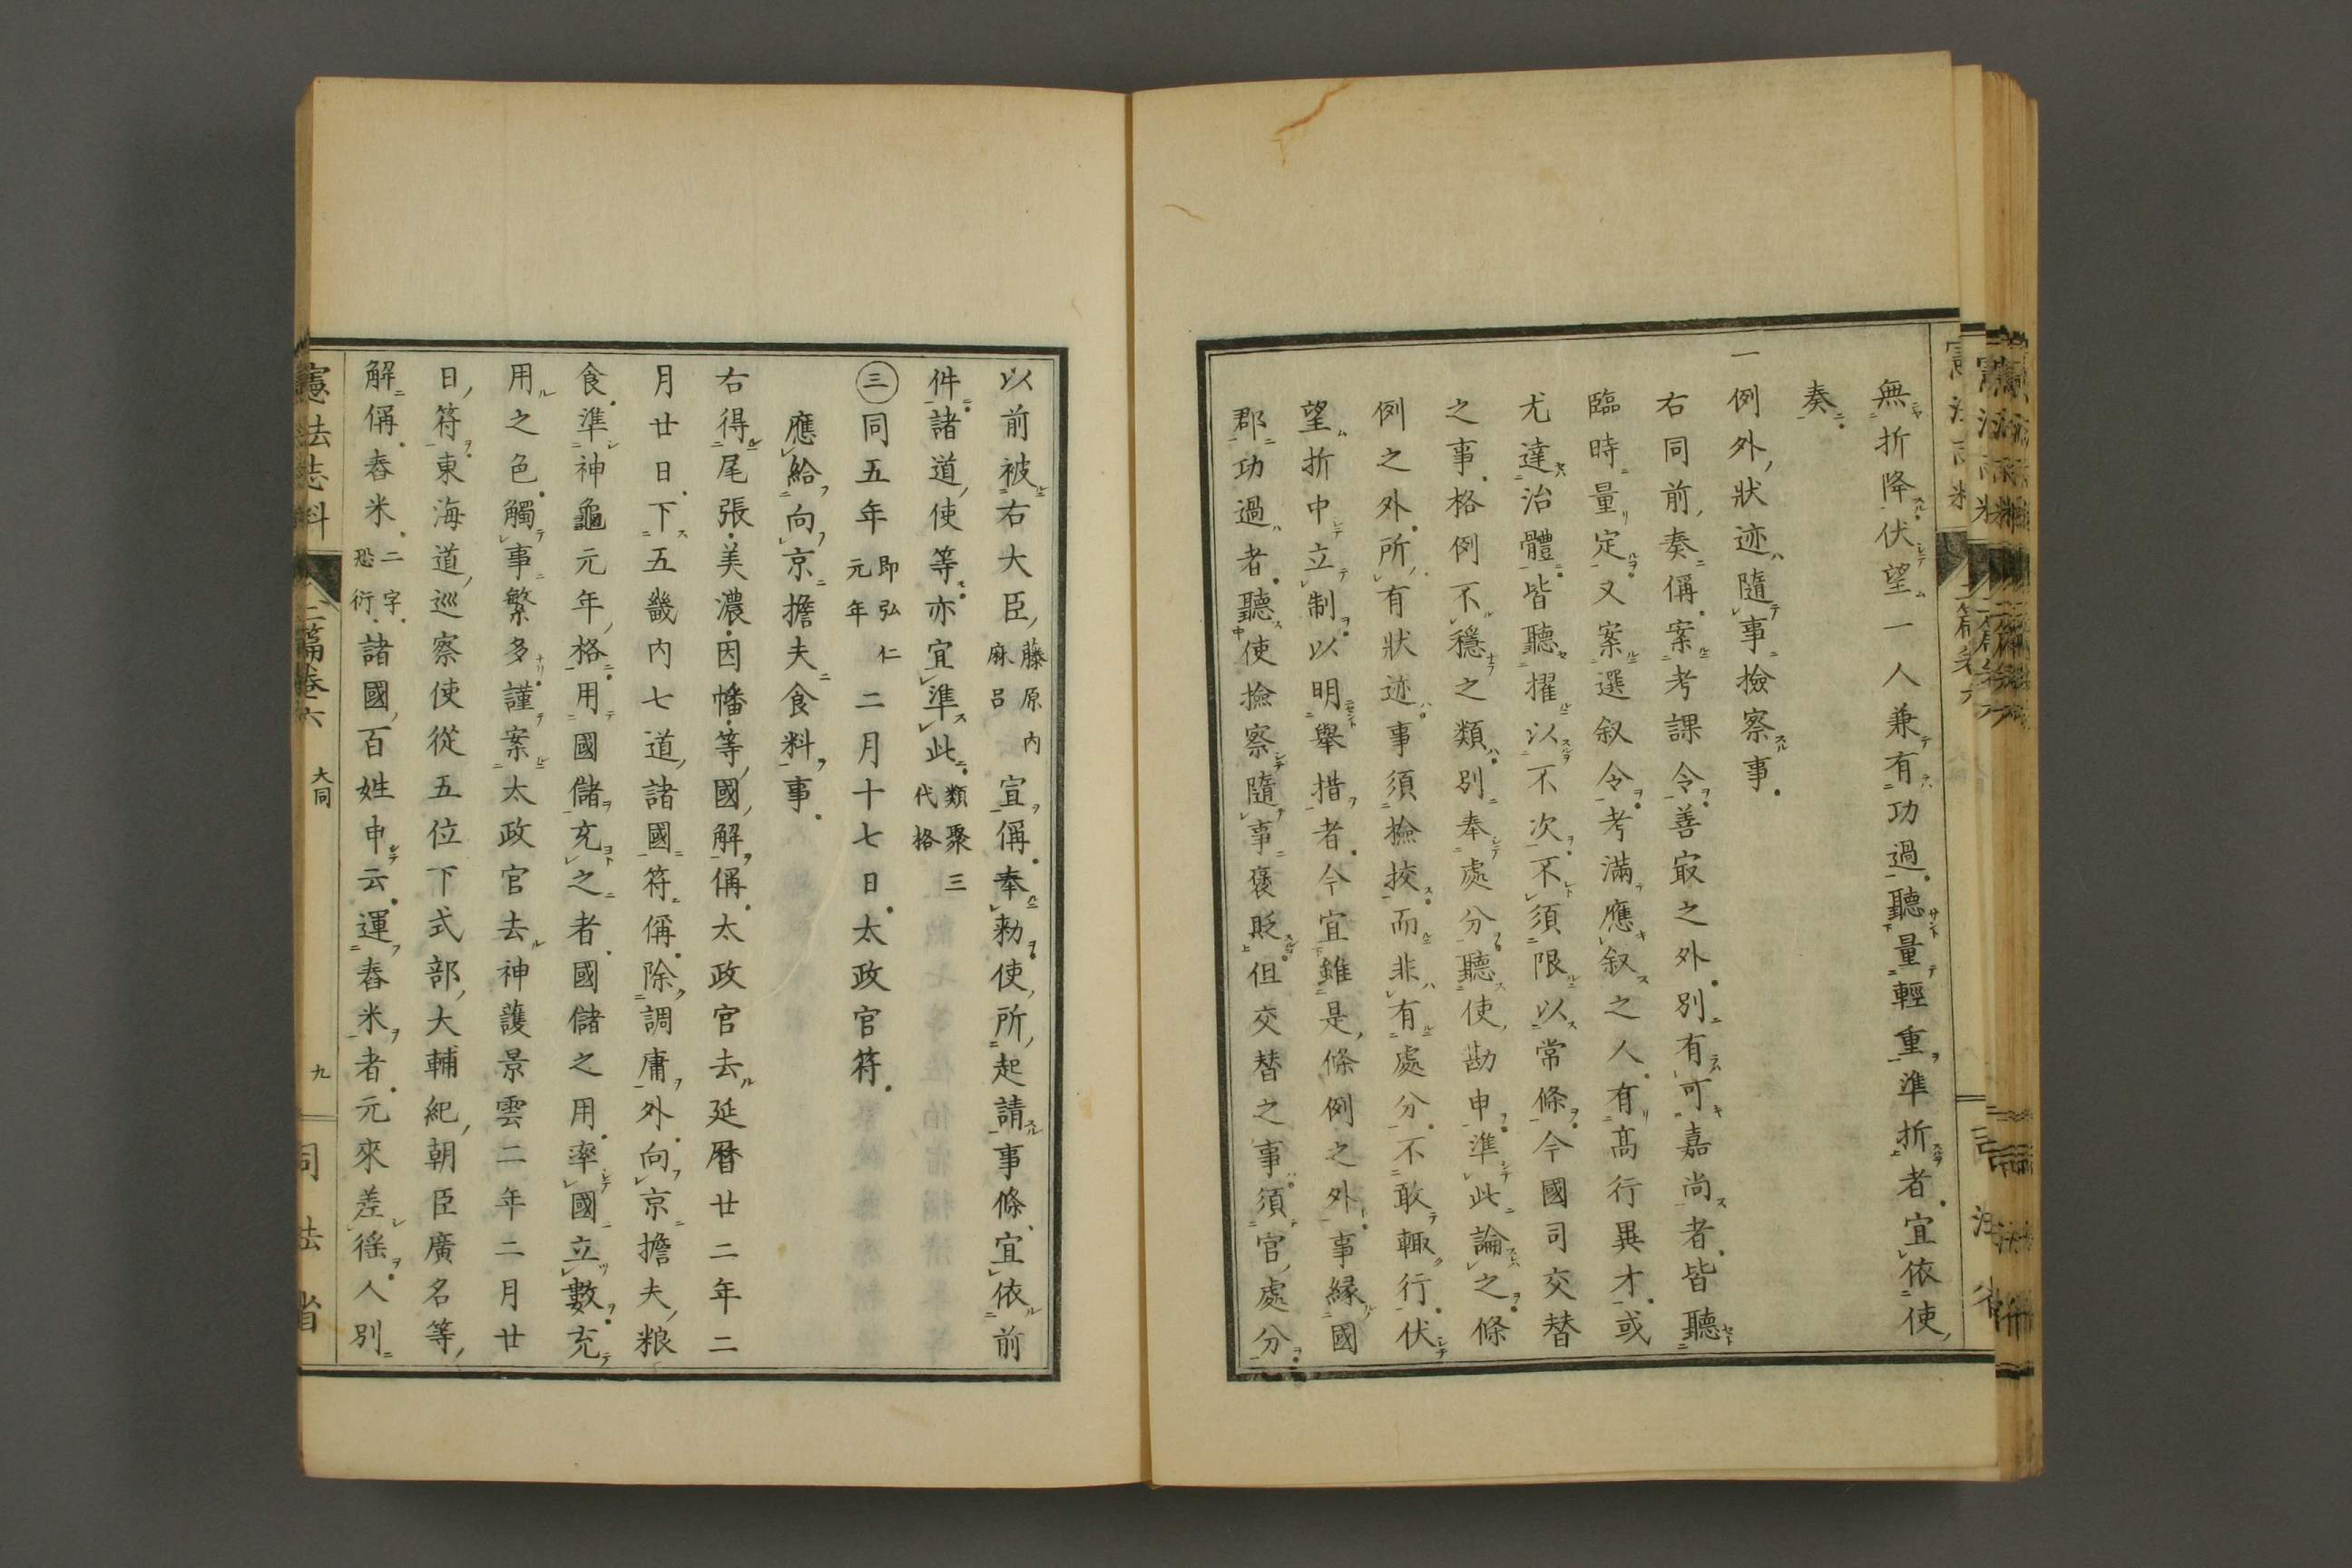 無折降伏望一人兼有功過聽量輕重準折者宜依使
奏
一例外狀迹隨事撿察事
右同前奏偁案考課令善㝡之外別有可嘉尚者皆聽
臨時量定又案選叙令考滿應叙之人有髙行異才或
尤達治體皆聽擢以不次不須限以常條今國司交替
之事格例不穩之類別奉處分聽使勘申準此論之條
例之外所有狀迹事須撿挍而非有處分不敢輙行伏
望折中立制以明舉措者今宜雖是條例之外事縁國
郡功過者聽使撿察隨事褒貶但交替之事須官處分
以前被右大臣藤原内麻呂宣偁奉勑使所起請事條宜依前
件諸道使等亦宜準此類聚三代格
㊂同五年即弘仁元年二月十七日太政官符
應給向京擔夫食料事
右得尾張美濃因幡等國解偁太政官去延暦廿二年二
月廿日下五畿内七道諸國符偁除調庸外向京擔夫粮
食準神龜元年格用國儲充之者國儲之用率國立數充
用之色觸事繁多謹案太政官去神護景雲二年二月廿
日符東海道巡察使從五位下式部大輔紀朝臣廣名等
解偁舂米二字恐衍諸國百姓申云運舂米者元來差徭人別
憲法志料
二篇卷六
大同
九
司法省